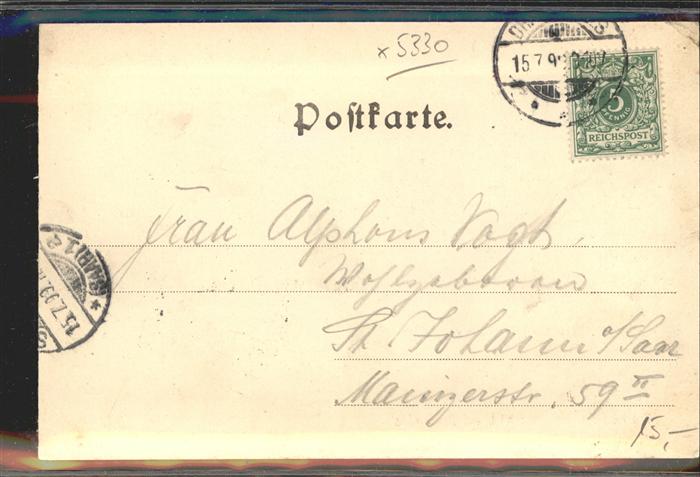 x 5330
15.7.9
5
REICHSPOST
Postkarte.
Frau Alphons Vogt,
Wohlgeboren
St. Johann a/Saar
Mainzerstr. 59 II
15.7.99
(SAAR) 1
15,-